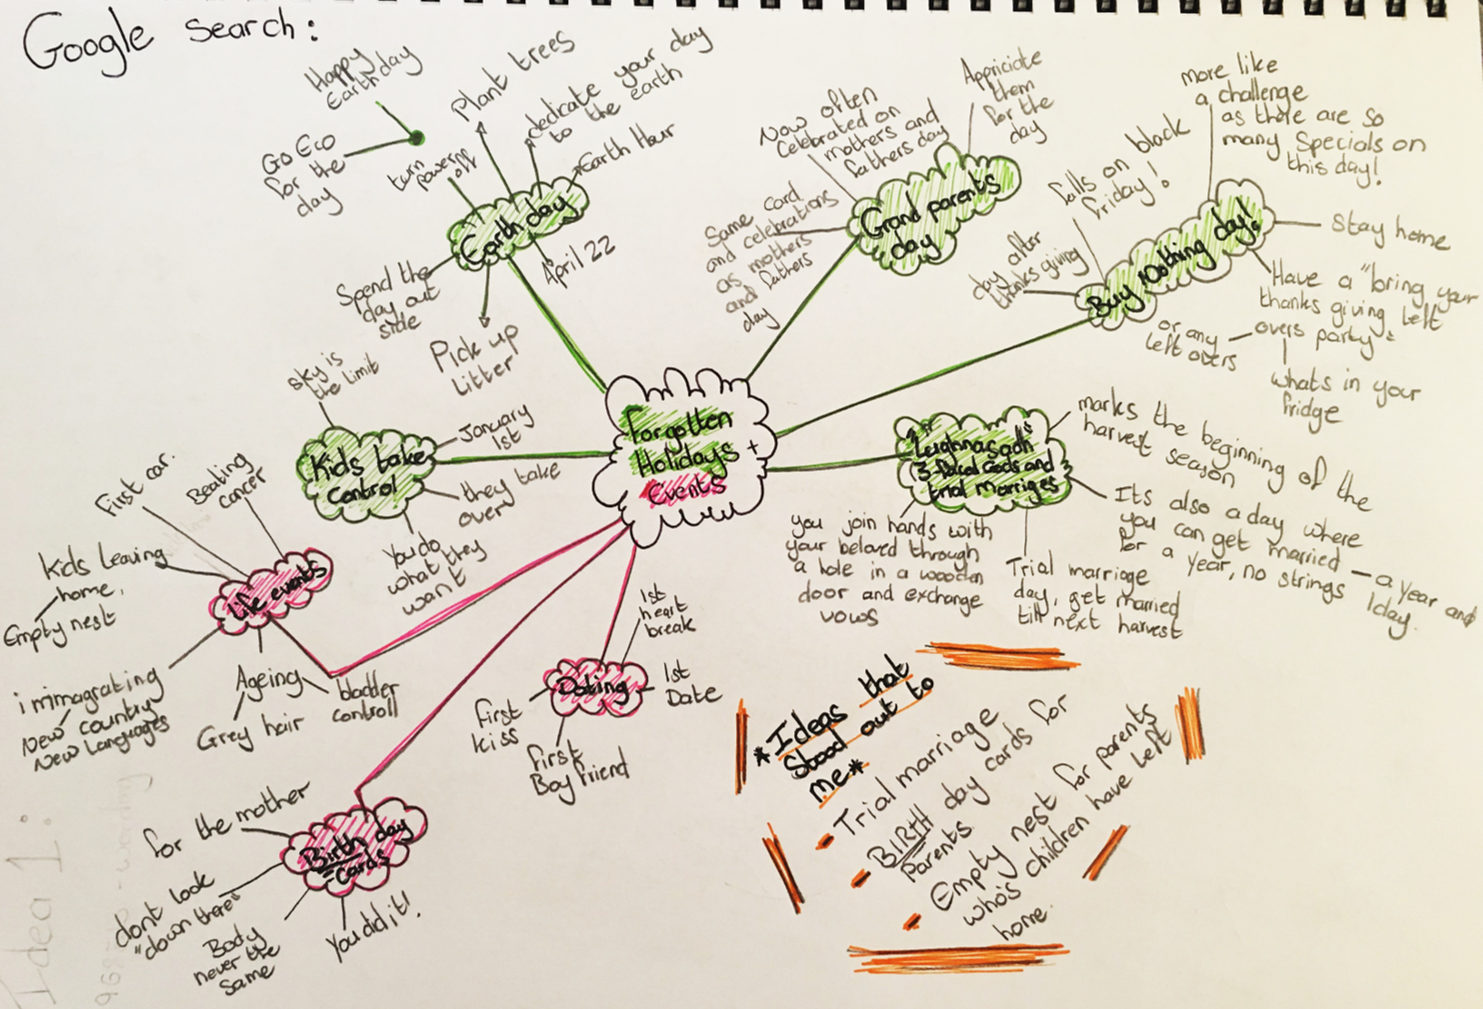 Google Search:
Happy
Earth day
Go Eco
for the
day
turn
power
off
Plant trees
dedicate your day
to the earth
Earth Hour
Earth day
April 22
Spend the
day out
side
Pick up
litter
Now often
Celebrated on
mothers and
fathers day
Appriciate
them
for the
day
Same card
and celebrations
as mothers
and fathers
day
Grand parents
day
more like
a challenge
as there are so
many Specials on
this day!
falls on black
friday!
day after
thanks giving
Buy Nothing day!
Stay home
Have a "bring your
thanks giving left
overs party"
or any
left overs
whats in your
fridge
Forgotten
Holidays +
Events
sky is
the limit
January
1st
Kids take
control
they take
over
You do
what they
want
"Lughnasadh"
(3-faced Gods and
trial marriges)
marks the beginning of the
harvest season
Its also a day where
you can get married
for a year, no strings
a year and
1day.
you join hands with
your beloved through
a hole in a wooden
door and exchange
vows
Trial marriage
day, get married
till next harvest
First car.
Beating
cancer
Kids leaving
home.
Empty nest
life events
immagrating
New country
New languages
Ageing
Grey hair
bladder
controll
1st
heart
break
Dating
1st
Date
first
kiss
first
Boyfriend
for the mother
Birth day
-cards
dont look
"down there"
Body
never the
same
You did it!
*Ideas that
stood out to
me*
- Trial marriage
- BIRTH day cards for
Parents
- Empty nest for parents
who's children have left
home.
Idea 1: